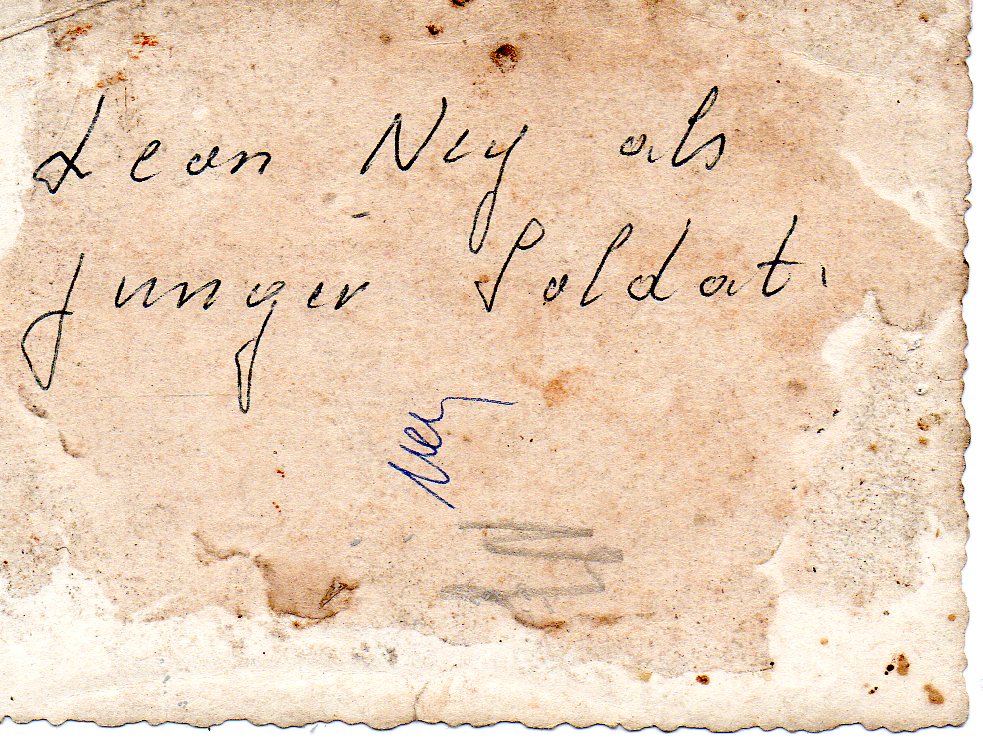 Leon Ney als
junger Soldat.
Ney